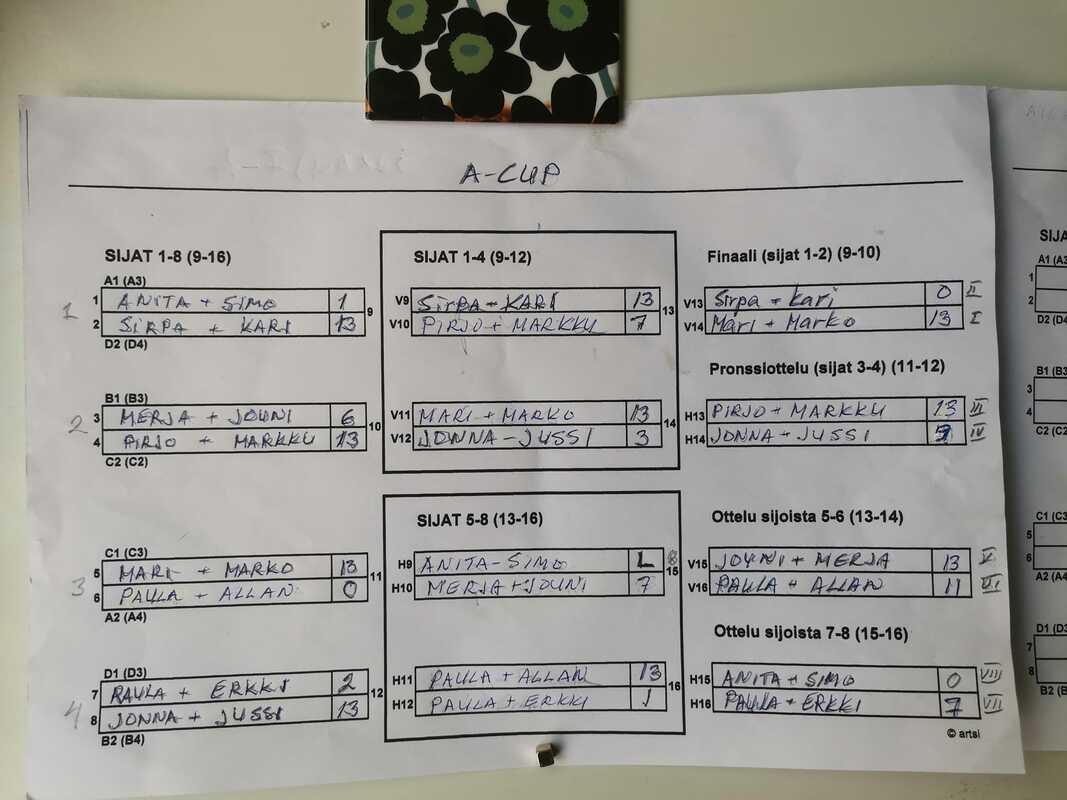 A-CUP
SIJAT 1-8 (9-16)
A1 (A3)
1
1 ANITA + SIMO 1
2 SIRPA + KARI 13
9
D2 (D4)
B1 (B3)
2
3 MERJA + JOUNI 6
4 PIRJO + MARKKU 13
10
C2 (C2)
C1 (C3)
3
5 MARI + MARKO 13
6 PAULA + ALLAN 0
11
A2 (A4)
D1 (D3)
4
7 PAULA + ERKKI 2
8 JONNA + JUSSI 13
12
B2 (B4)
SIJAT 1-4 (9-12)
V9 SIRPA + KARI 13
V10 PIRJO + MARKKU 7
13
V11 MARI + MARKO 13
V12 JONNA - JUSSI 3
14
SIJAT 5-8 (13-16)
H9 ANITA - SIMO L 8
H10 MERJA + JOUNI 7
15
H11 PAULA + ALLAN 13
H12 PAULA + ERKKI 1
16
Finaali (sijat 1-2) (9-10)
V13 Sirpa + kari 0 II
V14 Mari + Marko 13 I
Pronssiottelu (sijat 3-4) (11-12)
H13 PIRJO + MARKKU 13 III
H14 JONNA + JUSSI IV
Ottelu sijoista 5-6 (13-14)
V15 JOUNI + MERJA 13 V
V16 PAULA + ALLAN 11 VI
Ottelu sijoista 7-8 (15-16)
H15 ANITA + SIMO 0 VIII
H16 PAULA + ERKKI 7 VII
© artsi
SIJA
A1 (A3
1
2
D2 (D4
B1 (B3
3
4
C2 (C2
C1 (C3
5
6
A2 (A4
D1 (D3
7
8
B2 (B4